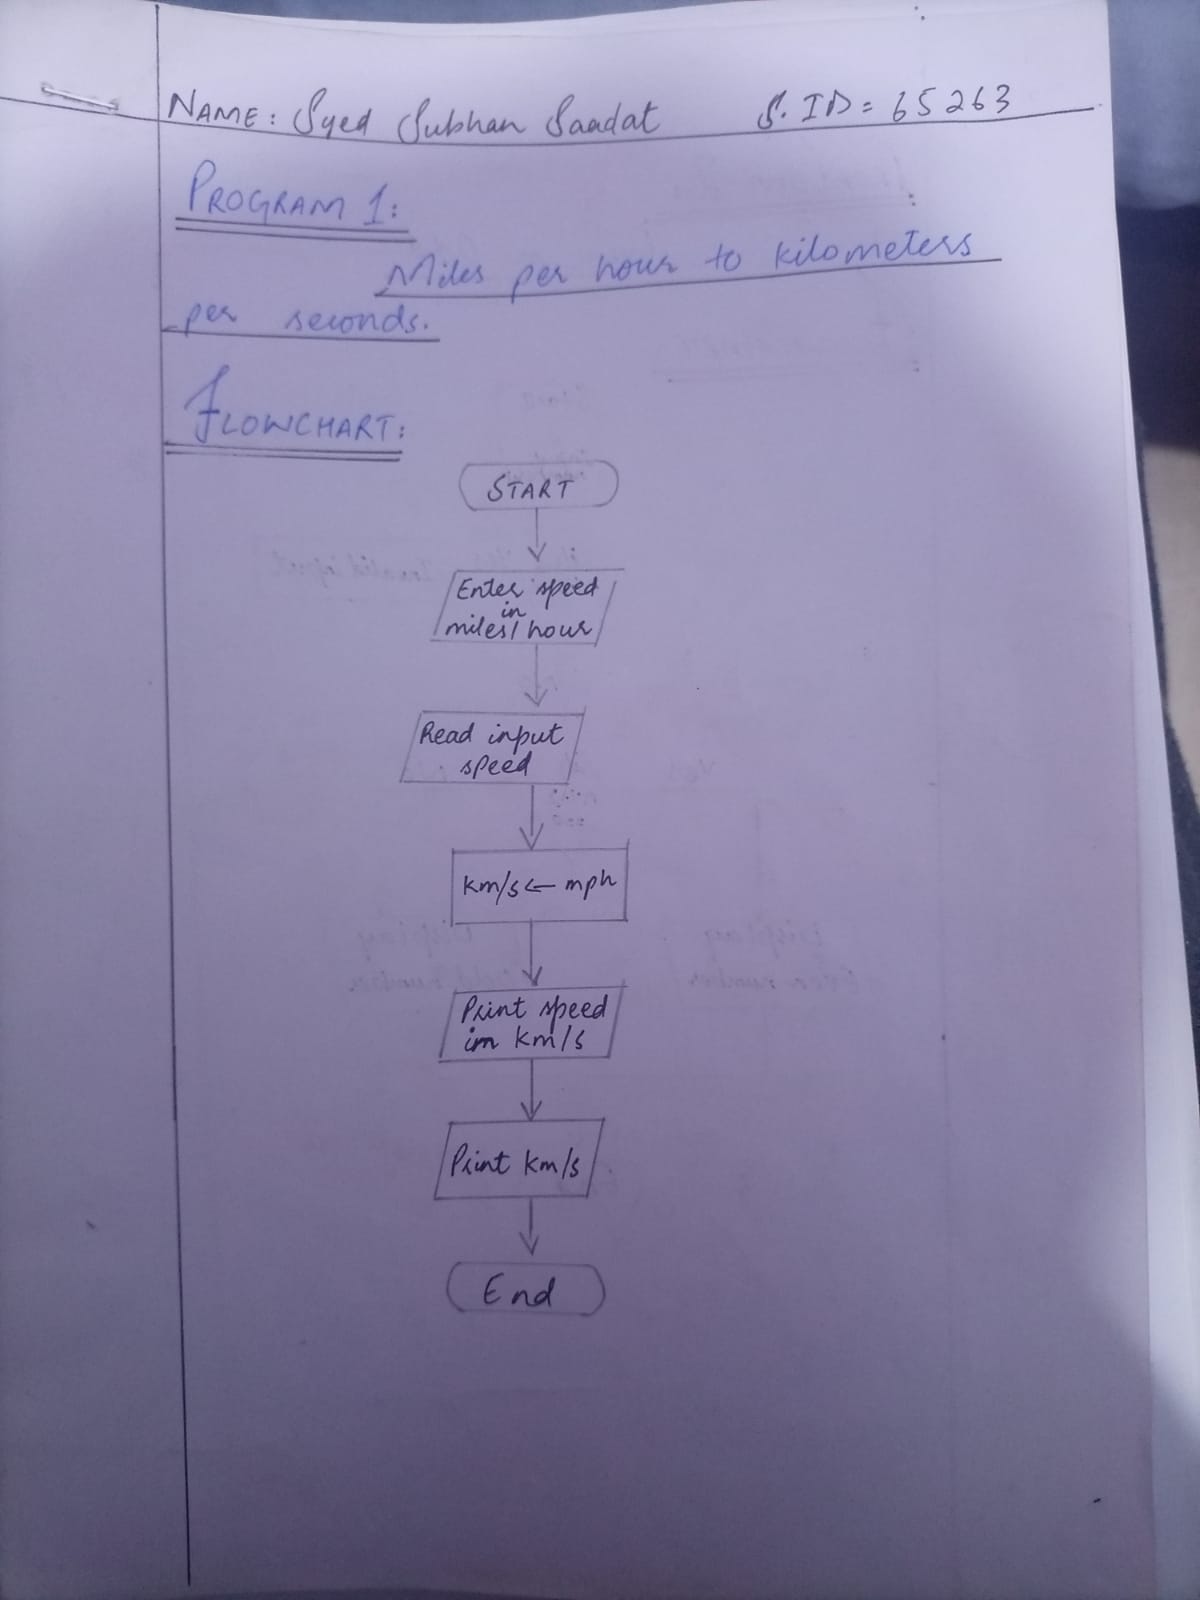 NAME: Syed Subhan Saadat S. ID = 65263
PROGRAM 1:
Miles per hour to kilometers
per seconds.
FLOWCHART:
START
Enter speed
in
miles/hour
Read input
speed
km/s ← mph
Print speed
in km/s
Print km/s
End